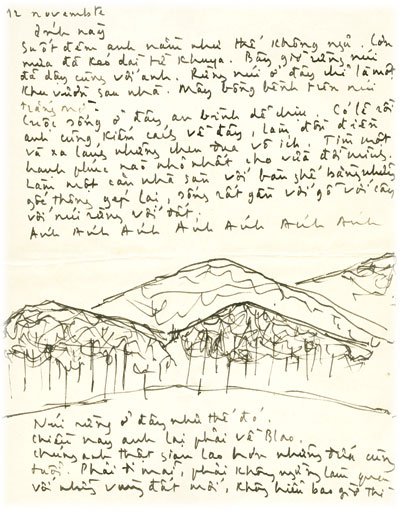 12 novembre
Ánh này
Suốt đêm anh nằm như thế không ngủ. Cơn
mưa đã kéo dài từ khuya. Bây giờ rừng núi
đã dậy cùng với anh. Rừng núi ở đây chỉ là một
khu vườn sau nhà. Mây bồng bềnh trên núi
trắng mờ.
Cuộc sống ở đây an bình dễ chịu. Có lẽ rồi
anh cũng kiếm cách về đây, làm đồn điền
và xa lánh những chen đua vô ích. Tìm một
hạnh phúc nào nhỏ nhất cho vừa đời mình.
Làm một căn nhà sàn với bàn ghế bằng những
gốc thông ghép lại, sống rất gần với gỗ với cây
với núi rừng với đất.
Ánh Ánh Ánh Ánh Ánh Ánh Ánh
Núi rừng ở đây như thế đó.
Chiều nay anh lại phải về Blao.
Chúng anh thật gian lao hơn những đứa cùng
tuổi. Phải đi mãi, phải không ngừng làm quen
với những vùng đất mới, không hiểu bao giờ thì